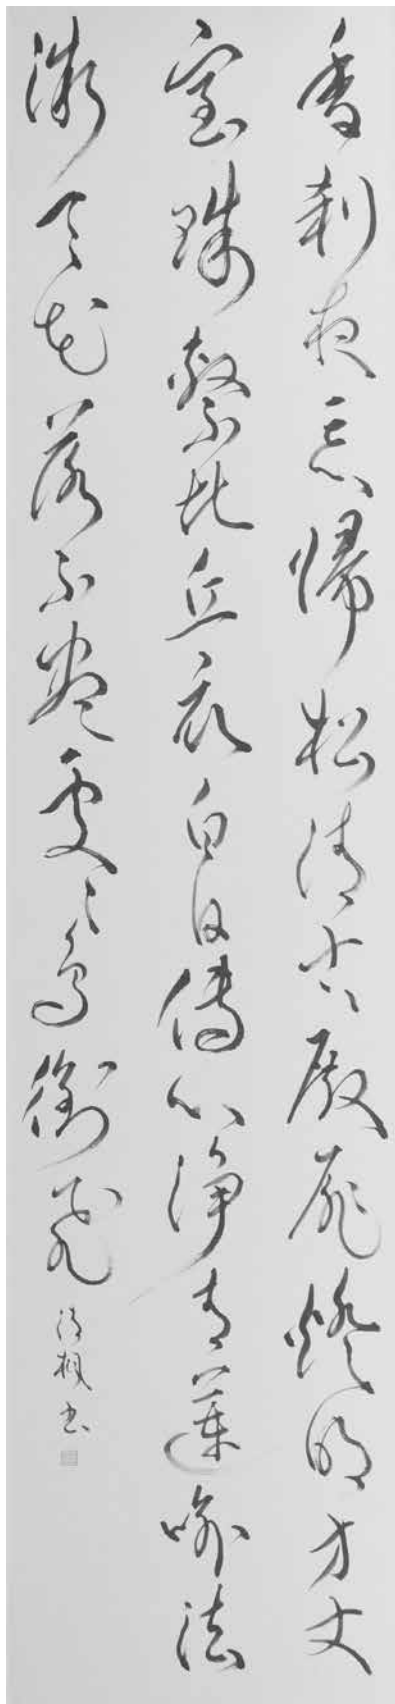 香刹夜忘歸松清古殿扉燈明方丈
室珠繫比丘衣白日傳心淨青蓮喻法
微天花落不盡處々鳥銜飛
楓書